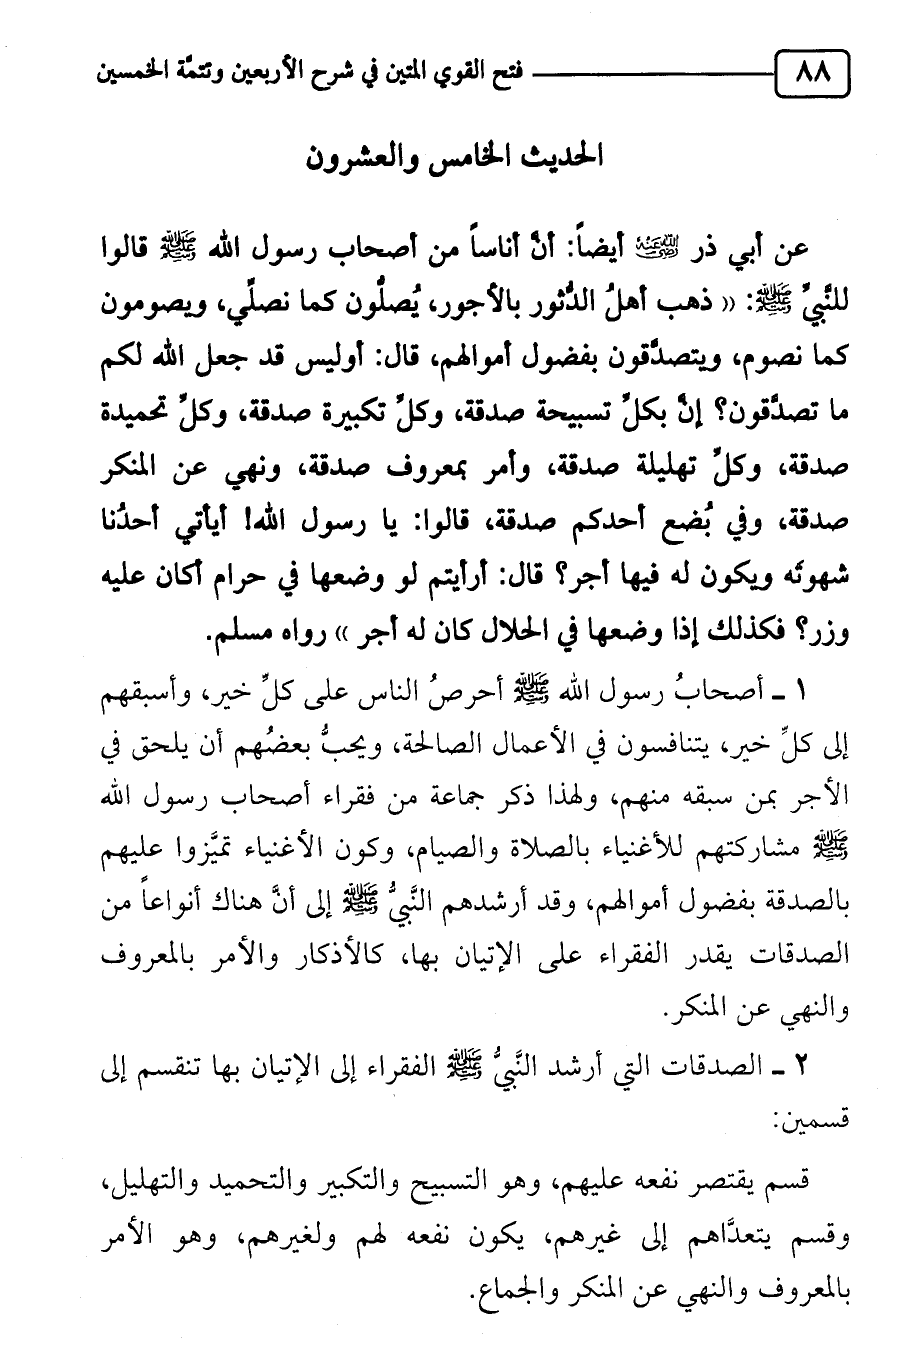 ٨٨ فتح القوي المتين في شرح الأربعين وتتمَّة الخمسين
الحديث الخامس والعشرون
عن أبي ذر رضي الله عنه أيضاً: أنَّ أناساً من أصحاب رسول الله ﷺ قالوا
للنَّبيِّ ﷺ: (( ذهب أهلُ الدُّثور بالأجور، يُصلُّون كما نصلِّي، ويصومون
كما نصوم، ويتصدَّقون بفضول أموالهم، قال: أوليس قد جعل الله لكم
ما تصدَّقون؟ إنَّ بكلِّ تسبيحة صدقة، وكلِّ تكبيرة صدقة، وكلِّ تحميدة
صدقة، وكلِّ تهليلة صدقة، وأمر بمعروف صدقة، ونهي عن المنكر
صدقة، وفي بُضع أحدكم صدقة، قالوا: يا رسول الله! أيأتي أحدُنا
شهوتَه ويكون له فيها أجر؟ قال: أرأيتم لو وضعها في حرام أكان عليه
وزر؟ فكذلك إذا وضعها في الحلال كان له أجر )) رواه مسلم.
١ ـ أصحابُ رسول الله ﷺ أحرصُ الناس على كلِّ خير، وأسبقهم
إلى كلِّ خير، يتنافسون في الأعمال الصالحة، ويحبُّ بعضُهم أن يلحق في
الأجر بمن سبقه منهم، ولهذا ذكر جماعة من فقراء أصحاب رسول الله
ﷺ مشاركتهم للأغنياء بالصلاة والصيام، وكون الأغنياء تميَّزوا عليهم
بالصدقة بفضول أموالهم، وقد أرشدهم النَّبيُّ ﷺ إلى أنَّ هناك أنواعاً من
الصدقات يقدر الفقراء على الإتيان بها، كالأذكار والأمر بالمعروف
والنهي عن المنكر.
٢ ـ الصدقات التي أرشد النَّبيُّ ﷺ الفقراء إلى الإتيان بها تنقسم إلى
قسمين:
قسم يقتصر نفعه عليهم، وهو التسبيح والتكبير والتحميد والتهليل،
وقسم يتعدَّاهم إلى غيرهم، يكون نفعه لهم ولغيرهم، وهو الأمر
بالمعروف والنهي عن المنكر والجماع.